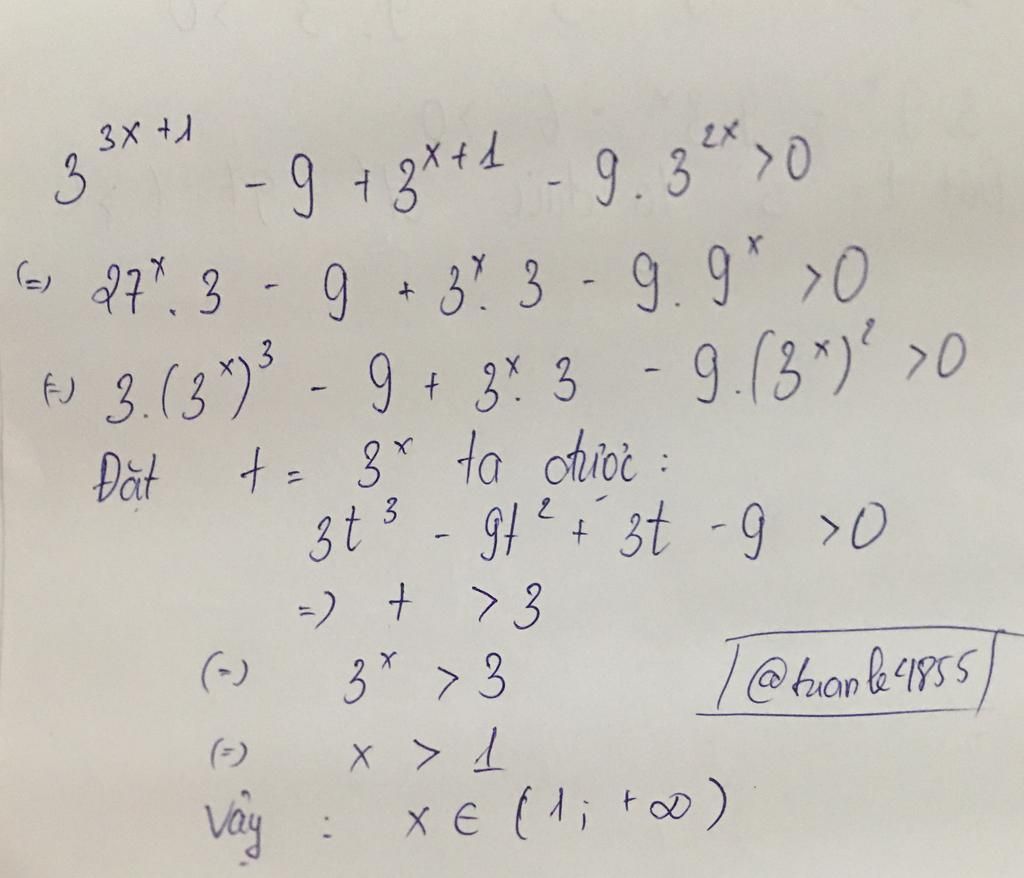 3^{3x+1} - 9 + 3^{x+1} - 9 . 3^{2x} > 0
(=) 27^x . 3 - 9 + 3^x . 3 - 9 . 9^x > 0
(=) 3 . (3^x)^3 - 9 + 3^x . 3 - 9 . (3^x)^2 > 0
Đặt t = 3^x ta được :
3t^3 - 9t^2 + 3t - 9 > 0
=) t > 3
(=) 3^x > 3
@tuanle4855
(=) x > 1
Vậy : x ∈ (1; +∞)